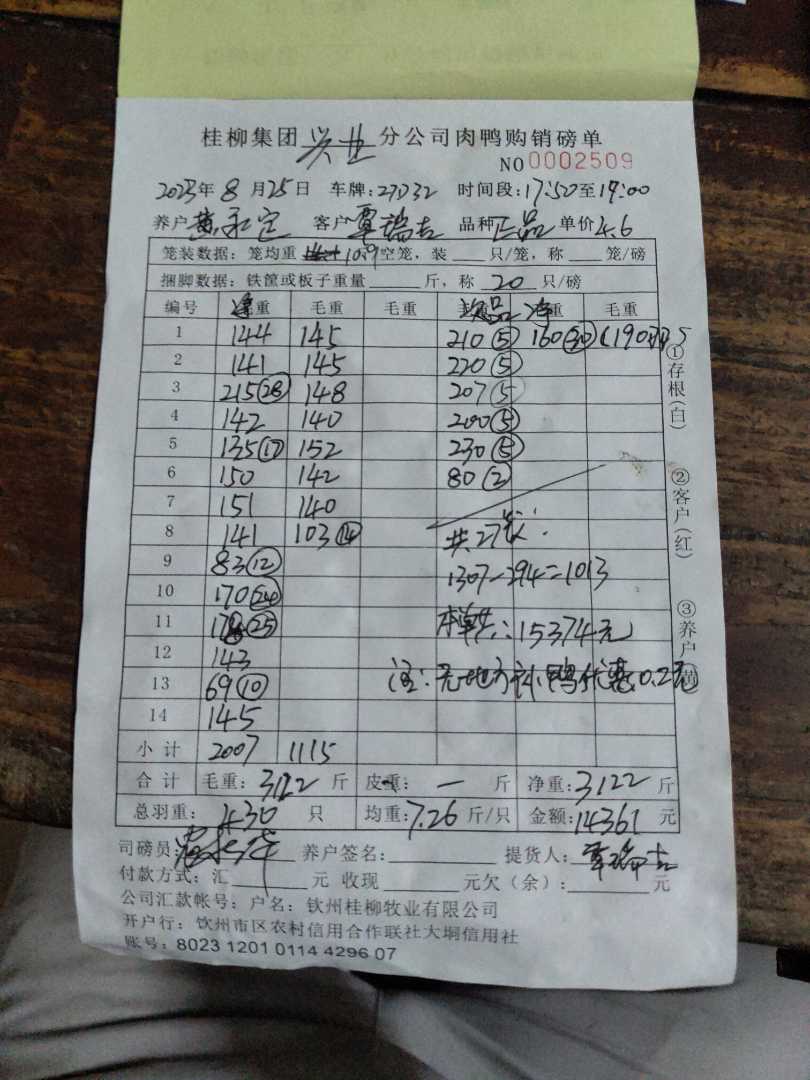 桂柳集团兴业分公司肉鸭购销磅单
NO 0002509
2023年8月25日 车牌:27D32 时间段:17:50至19:00
养户 黄 定 客户 覃瑞吉 品种 正品 单价 4.6
笼装数据: 笼均重 10.9 空笼, 装 只/笼, 称 笼/磅
捆脚数据: 铁筐或板子重量 斤, 称 20 只/磅
编号 净重 毛重 毛重 次品 净重 毛重
1 144 145 210⑤ 160
2 141 145 220⑤
3 215㉘ 148 207⑤
4 142 140 200⑤
5 135⑰ 152 230⑤
6 150 142 80②
7 151 140
8 141 103⑭ 共27笼:
9 83⑫
1307-294=1013
10 170㉔
11 25 本单共:15374元
12 143
13 69⑩ 注:无地方补,鸭优惠0.2元
14 145
小计 2007 1115
合计 毛重:3122斤 皮重:一 斤 净重:3122斤
总羽重:430 只 均重:7.26斤/只 金额:14361元
司磅员: 养户签名: 提货人:覃瑞吉
付款方式:汇 元 收现 元欠(余): 元
公司汇款帐号:户名:钦州桂柳牧业有限公司
开户行:钦州市区农村信用合作联社大垌信用社
账号:8023 1201 0114 4296 07
①存根(白)
②客户(红)
③养户(黄)